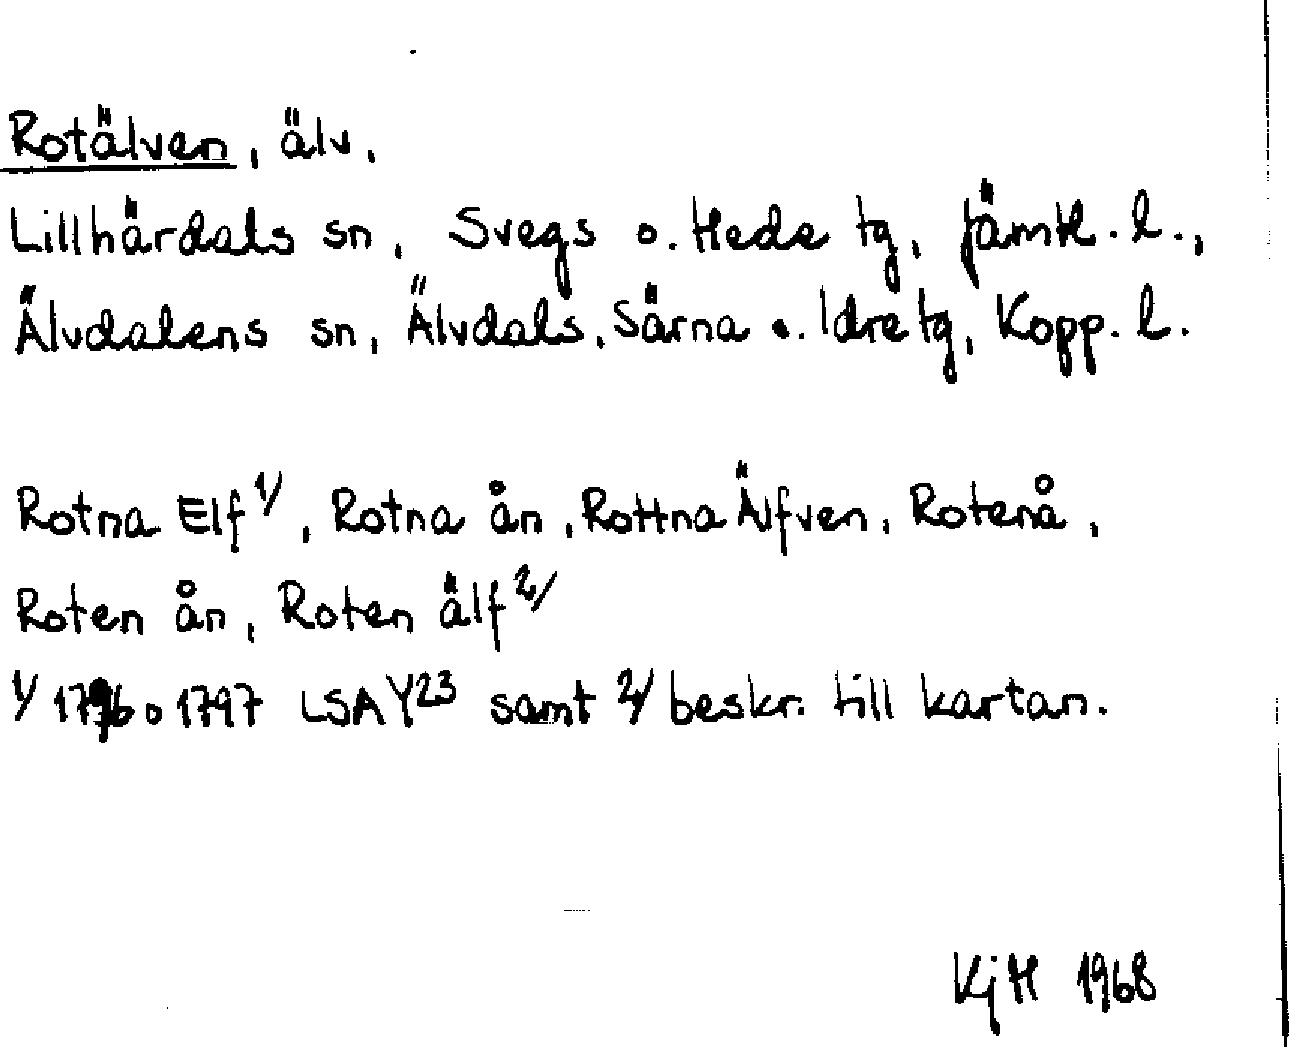 Rotälven, älv.
Lillhärdals sn, Svegs o. Hede tg, Jämtl. l.,
Älvdalens sn, Älvdals, Särna o. Idre tg, Kopp. l.
Rotna Elf 1/, Rotna ån, Rottna Älfven, Rotenå,
Roten ån, Roten älf 2/
1/ 1796 o 1797 LSA Y23 samt 2/ beskr. till kartan.
KjH 1968